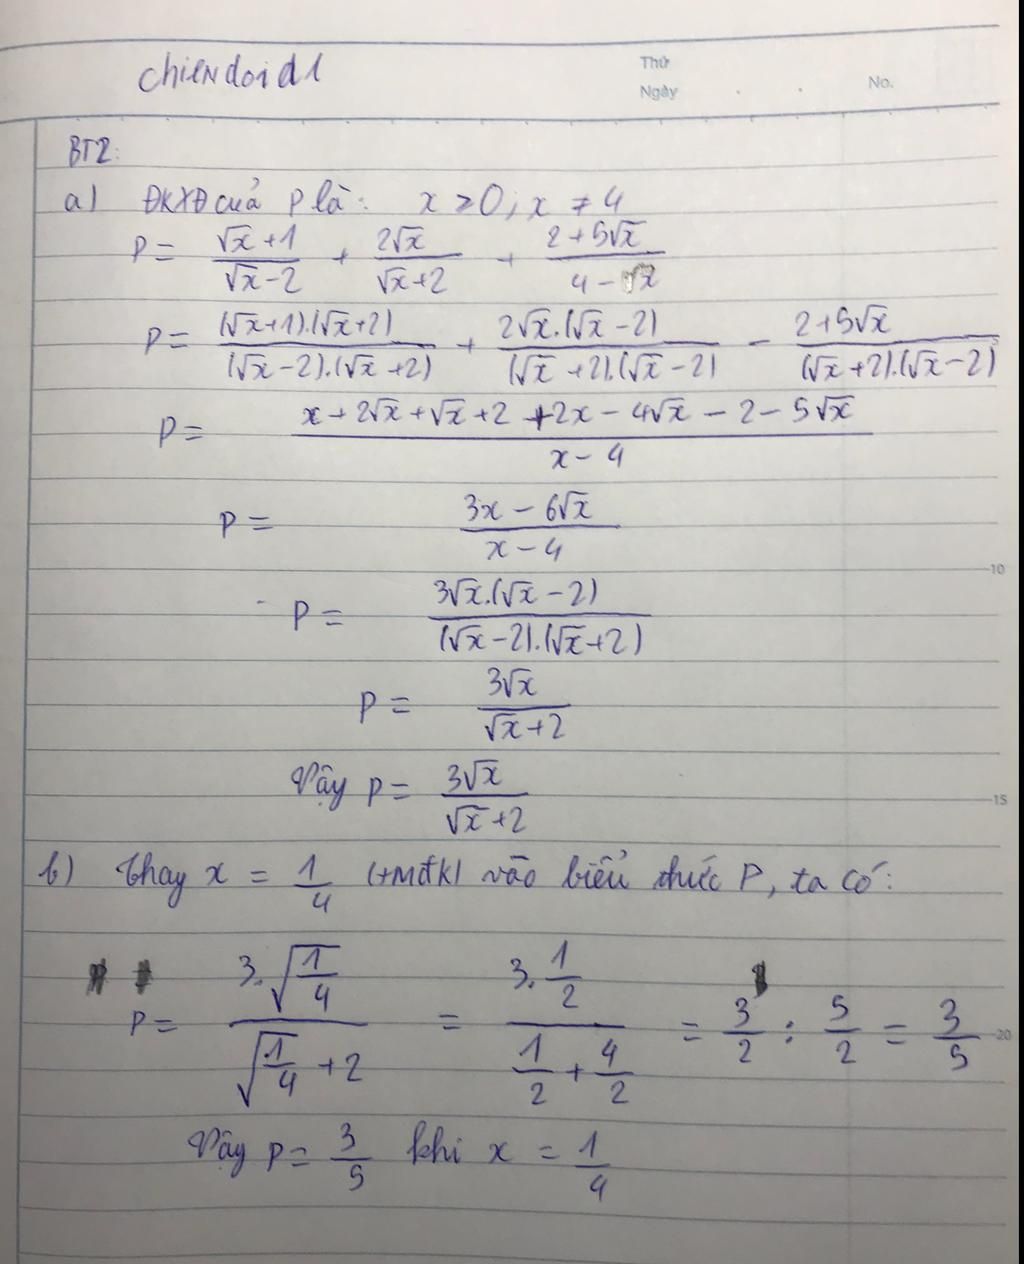 chiendoid1
Thứ
Ngày . . No.
BT2:
a) ĐKXĐ của P là: x ≥ 0; x ≠ 4
P = (√x + 1)/(√x - 2) + 2√x/(√x + 2) + (2 + 5√x)/(4 - x)
P = (√x + 1).(√x + 2)/(√x - 2).(√x + 2) + 2√x.(√x - 2)/(√x + 2).(√x - 2) - (2 + 5√x)/(√x + 2).(√x - 2)
P = (x + 2√x + √x + 2 + 2x - 4√x - 2 - 5√x)/(x - 4)
P = (3x - 6√x)/(x - 4)
10
P = 3√x.(√x - 2)/(√x - 2).(√x + 2)
P = 3√x/(√x + 2)
Vậy P = 3√x/(√x + 2)
15
b) Thay x = 1/4 (+MĐK) vào biểu thức P, ta có:
P = 3.√(1/4)/(√(1/4) + 2) = 3.1/2/(1/2 + 4/2) = 3/2 : 5/2 = 3/5
20
Vậy P = 3/5 khi x = 1/4